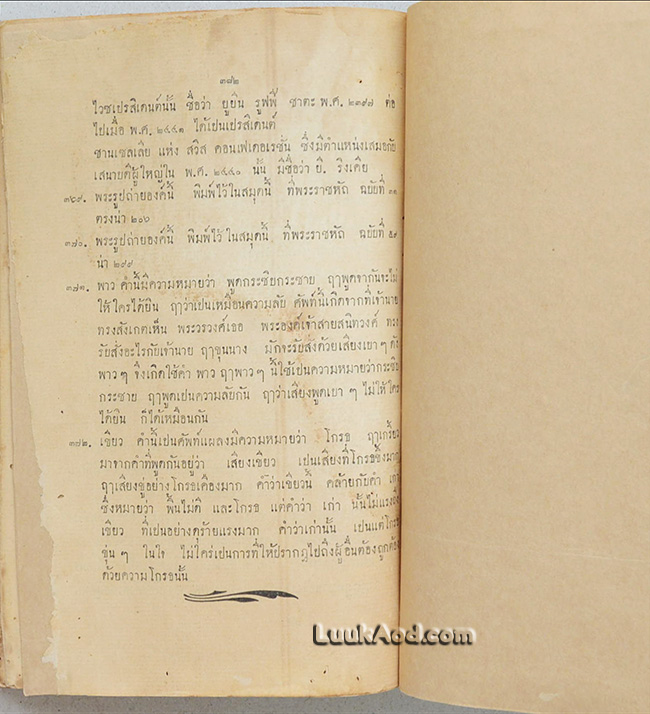 ๓๘๒
ไวซเปรสิเดนต์นั้น ชื่อว่า ยูยิน รูฟฟี่ ชาตะ พ.ศ. ๒๓๙๗ ต่อ
ไปเมื่อ พ.ศ. ๒๔๔๑ ได้เป็นเปรสิเดนต์
ชานเซลเลีย แห่ง สวิส คอนเฟเดอเรชั่น ซึ่งมีตำแหน่งเสมอกับ
เสนาบดีผู้ใหญ่ใน พ.ศ. ๒๔๔๐ นั้น มีชื่อว่า ยี. ริงเคีย
๓๖๙. พระรูปถ่ายองค์นี้ พิมพ์ไว้ในสมุดนี้ ที่พระราชหัถ ฉบับที่ ๓๑
ตรงน่า ๒๐๖
๓๗๐. พระรูปถ่ายองค์นี้ พิมพ์ไว้ในสมุดนี้ ที่พระราชหัถ ฉบับที่
น่า ๒๙๙
๓๗๑. พาว คำนี้มีความหมายว่า พูดกระซิบกระซาบ ฤๅพูดจากันจะไม่
ให้ใครได้ยิน ฤๅว่าเป็นเหมือนความลับ ศัพท์นี้เกิดจากที่เจ้านาย
ทรงสังเกตเห็น พระวรวงศ์เธอ พระองค์เจ้าสายสนิทวงศ์ ทรง
รับสั่งอะไรกับเจ้านาย ฤๅขุนนาง มักจะรับสั่งด้วยเสียงเบาๆ ดัง
พาวๆ จึงเกิดใช้คำ พาว ฤๅพาวๆ นี้ใช้เป็นความหมายว่ากระซิบ
กระซาบ ฤๅพูดเป็นความลับกัน ฤๅว่าเสียงพูดเบา ๆ ไม่ให้ใคร
ได้ยิน ก็ได้เหมือนกัน
๓๗๒. เขียว คำนี้เป็นศัพท์แผลงมีความหมายว่า โกรธ ฤๅเกรี้ยว
มาจากคำที่พูดกันอยู่ว่า เสียงเขียว เป็นเสียงที่โกรธซึ่งมาก
ฤๅเสียงขู่อย่างโกรธเคืองมาก คำว่าเขียวนี้ คล้ายกับคำ เก่า
ซึ่งหมายว่า พื้นไม่ดี และโกรธ แต่คำว่า เก่า นั้นไม่แรงถึง
เขียว ที่เป็นอย่างดุร้ายแรงมาก คำว่าเก่านั้น เป็นแต่โกรธ
ขุ่นๆ ในใจ ไม่ใคร่เป็นการที่ให้ปรากฏไปถึงผู้อื่นต้องถูกต้อง
ด้วยความโกรธนั้น
LuukAod.com